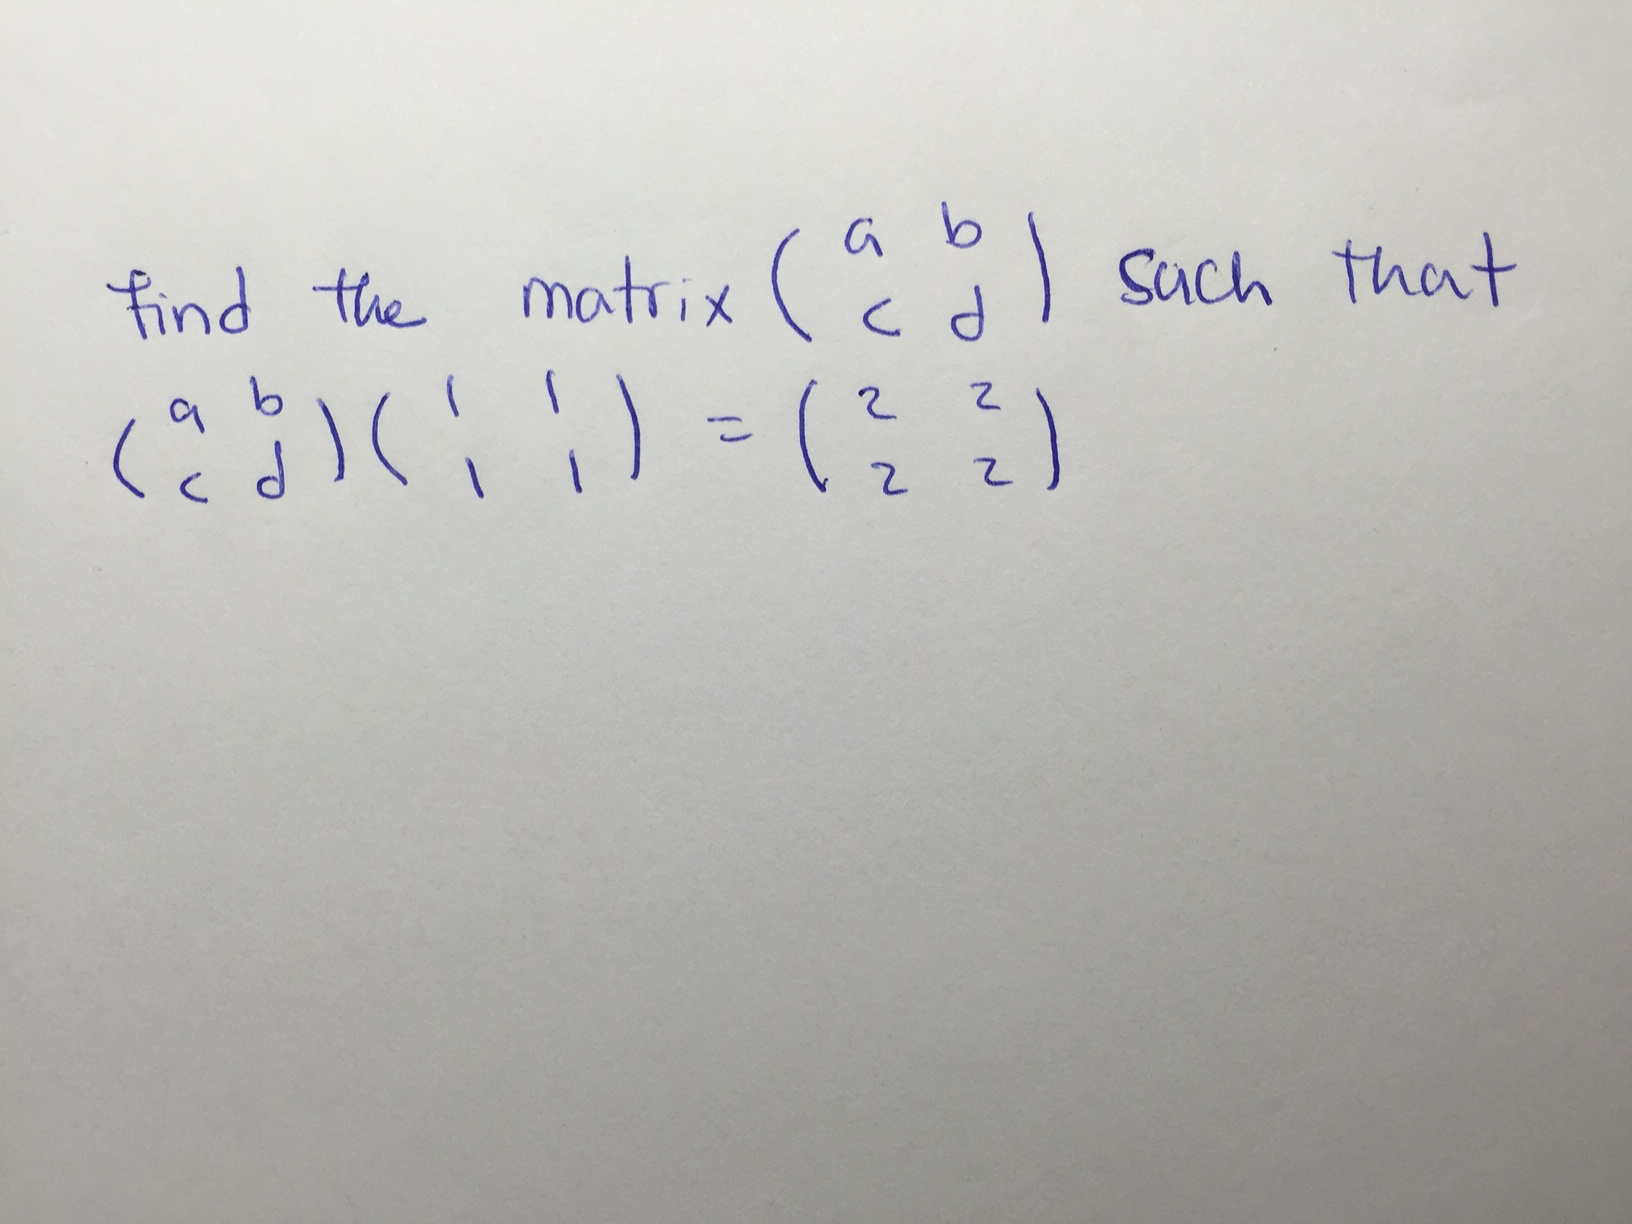 find the matrix ( a b
c d ) such that
( a b
c d ) ( 1 1
1 1 ) = ( 2 2
2 2 )